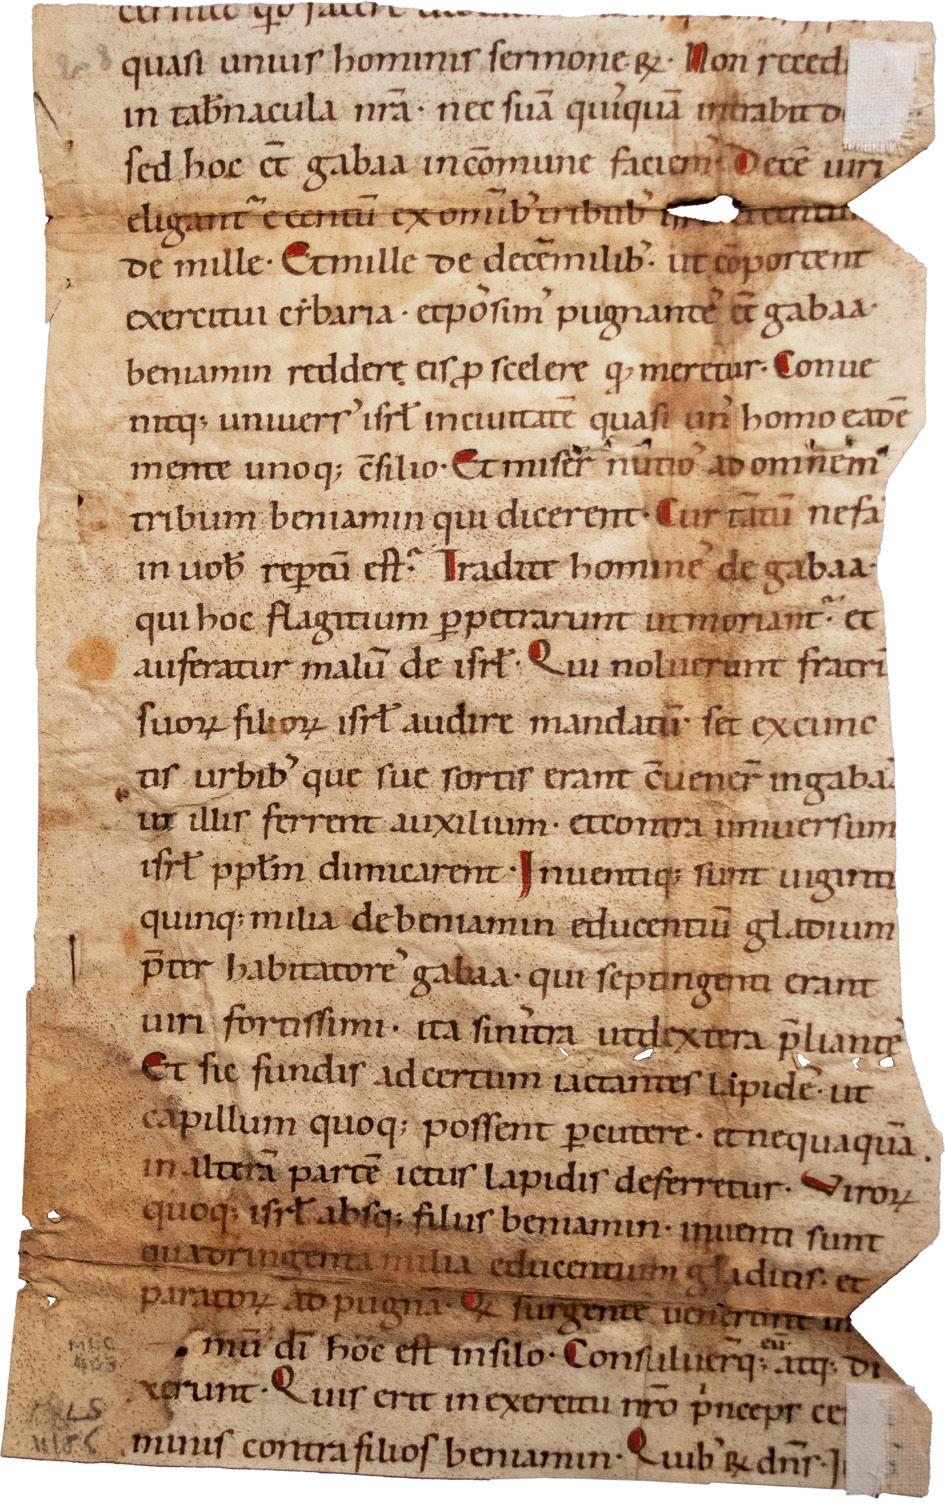 quasi unius hominis sermone. Non reced
in tab̄nacula nr̄a· nec suā quiquā intrabit d
sed hoc c̄t gabaa incōmune faciem᾽ Decē uiri
eligant᷑ e centū ex omib᾽ tribub᾽ centum
de mille· Et mille de decēmilib᾽· ut cōportent
exercitui cib̓aria· et pos̄im᾽ pugnante᾽ c̄t gabaa·
beniamin reddere eis ꝓ scelere qḍ meretur· Conue
nitq; uniuers᾽ isrł inciuitatē quasi un᾽ homo eadē
mente unoq; c̄silio· Et miser̄ nūtio᾽ ad omnem
tribum beniamin qui dicerent· Cur tātū nefa
in uob̄ rep̱tū est· Tradite homine᾽ de gabaa·
qui hoc flagitium ꝑpetrarunt ut moriant᷑· et
auferatur malū de isrł· Qui noluerunt fratrū
suoꝝ filioꝝ isrł audire mandatū· set ex cunc
tis urbib᾽ que sue sortis erant c̄uener̄ in gabaa
ut illis ferrent auxilium· et contra uniuersum
isrł pptm dimicarent· Inuentiq; sunt uiginti
quinq; milia de beniamin educentiū gladium
p̄ter habitatore᾽ gabaa· qui septingenti erant
uiri fortissimi· ita sinis̓tra ut dextera p̄liante᾽
Et sic fundis ad certum iactantes lapide᾽· ut
capillum quoq; possent ꝑcutere· et nequaquā
in alterā partē ictus lapidis deferretur· Viroꝝ
quoq; isrł absq; filiis beniamin· inuenti sunt
quatringenta milia educentium gladius· et
paratoꝝ ad pugnā· Qi surgente᾽ uenerunt in
mū dī hoc est in silo· Consuluer̄q; eū atq; di
xerunt· Quis erit in exercitu nr̄o p̓nceps cer
minis contra filios beniamin· Quib᾽ ꝶ dn̄s· I